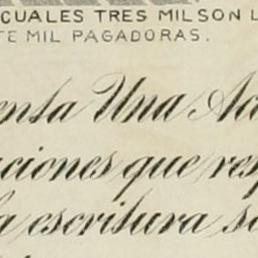 CUALES TRES MIL SON L
TE MIL PAGADORAS.
enta Una Ac
aciones que resp
la escritura so